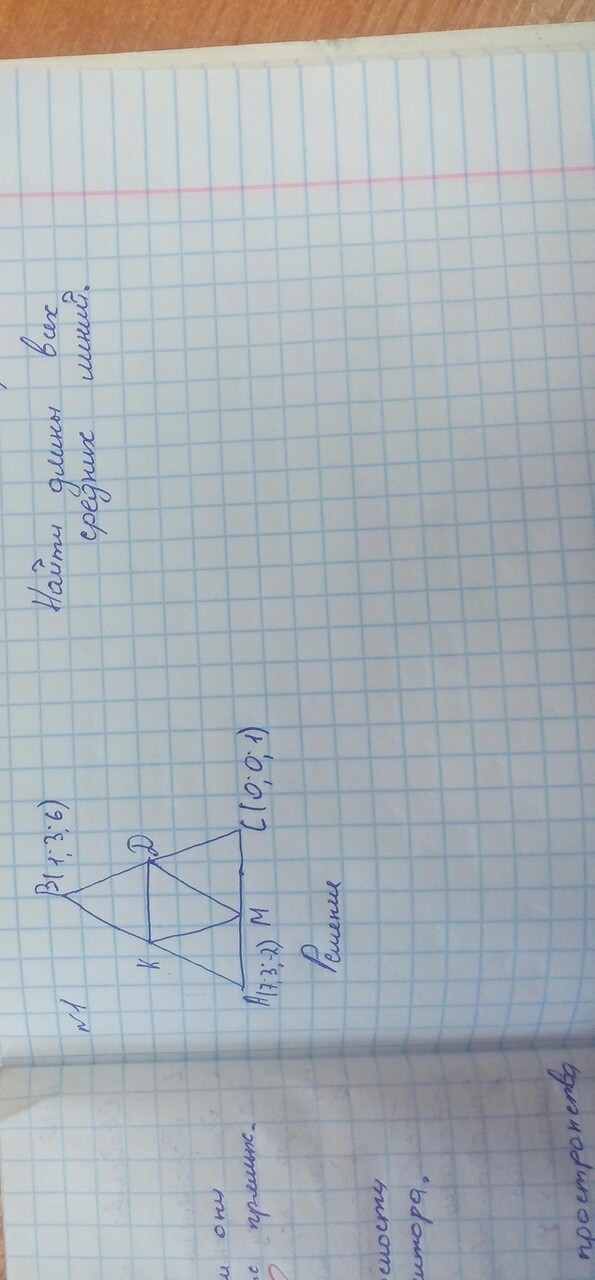 №1
B(1;3;6)
Найти длины всех
средних линий.
K
D
A(7;3;-2)
M
C(0;0;1)
Решение
они
пространства